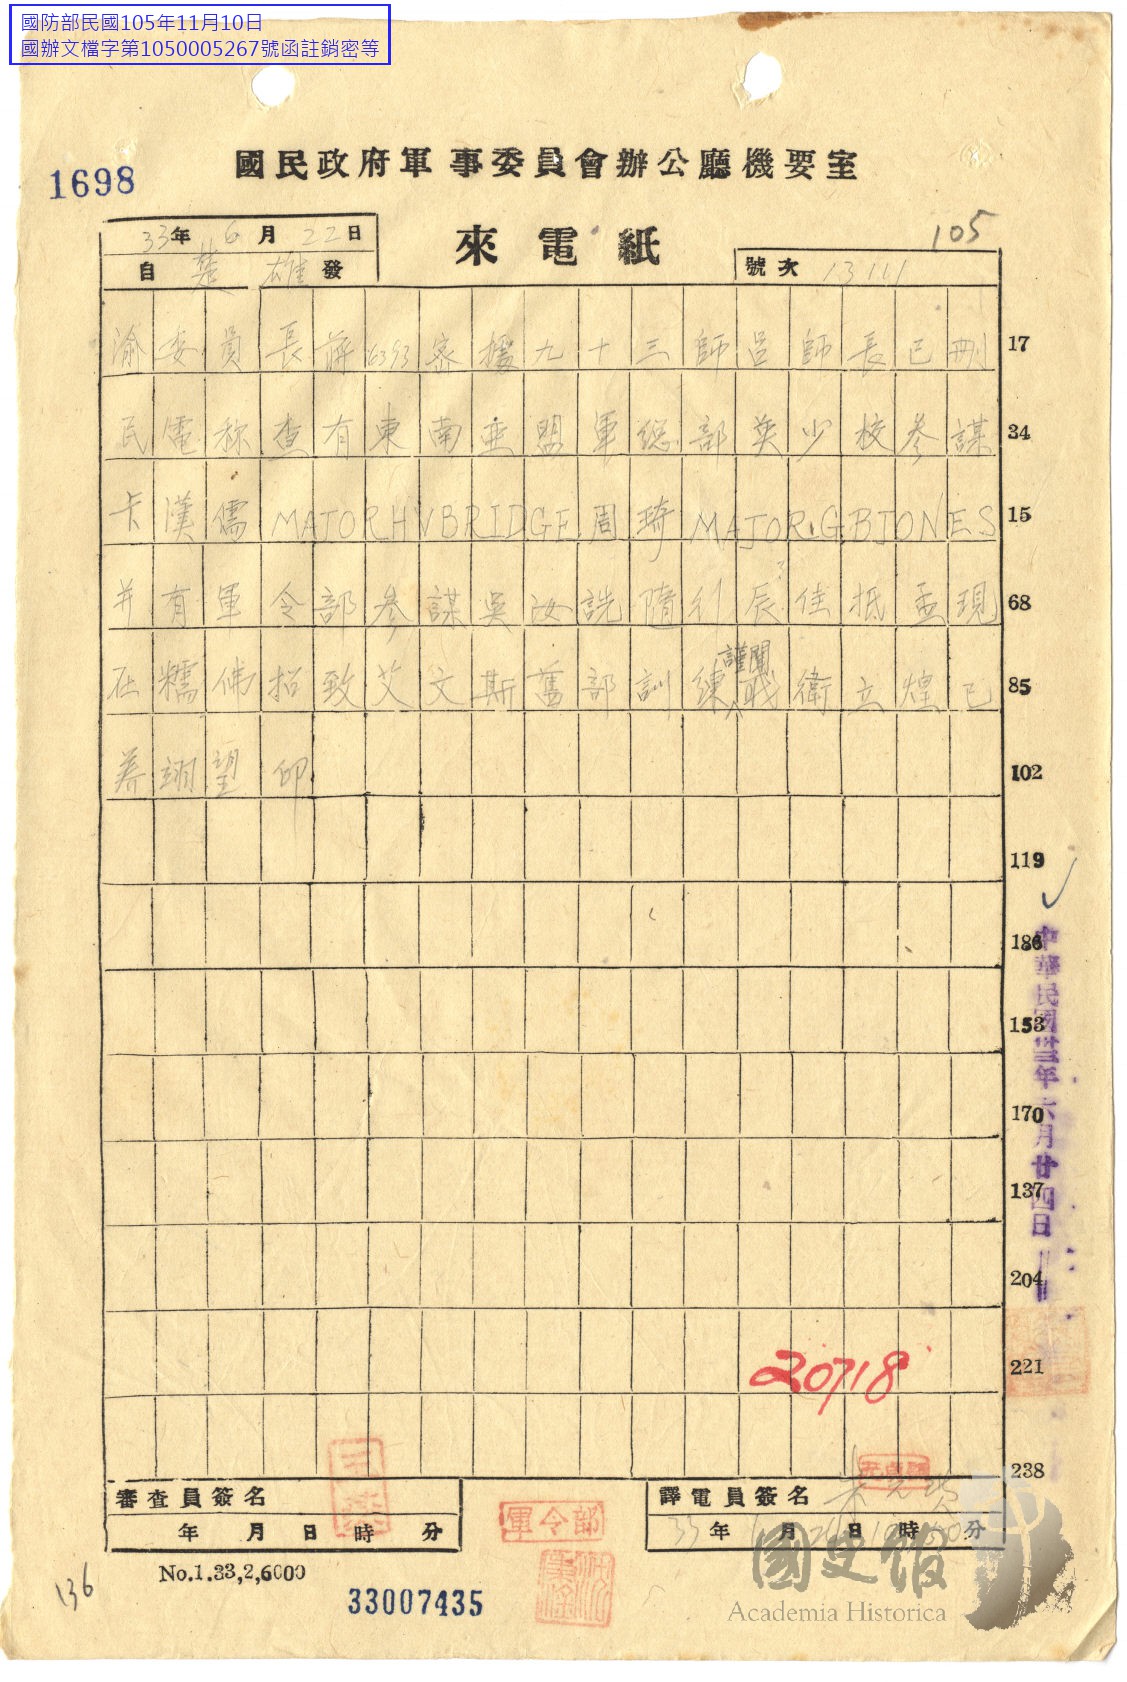 國防部民國105年11月10日
國辦文檔字第1050005267號函註銷密等
1698
國民政府軍事委員會辦公廳機要室
來電紙
105
33年6月22日
自楚雄發
號次 13111
渝委員長蔣6393密據九十三師呂師長已刪 17
民電称查有東南亜盟軍總部英少校參謀 34
卡漢儒MAJORHVBRIDGE周琦MAJOR.GBJONES 15
并有軍令部參謀吳汝詵隨行辰佳抵孟現 68
在糯佛招致艾文斯舊部訓練謹聞職衛立煌已 85
養翊望印 102
119
186
153
170
137
204
221
238
中華民國卅三年六月廿四日
20718
審查員簽名
年 月 日 時 分
軍令部
譯電員簽名
33年 月 日 時 分
No.1.33,2,6000
33007435
136
國史館
Academia Historica